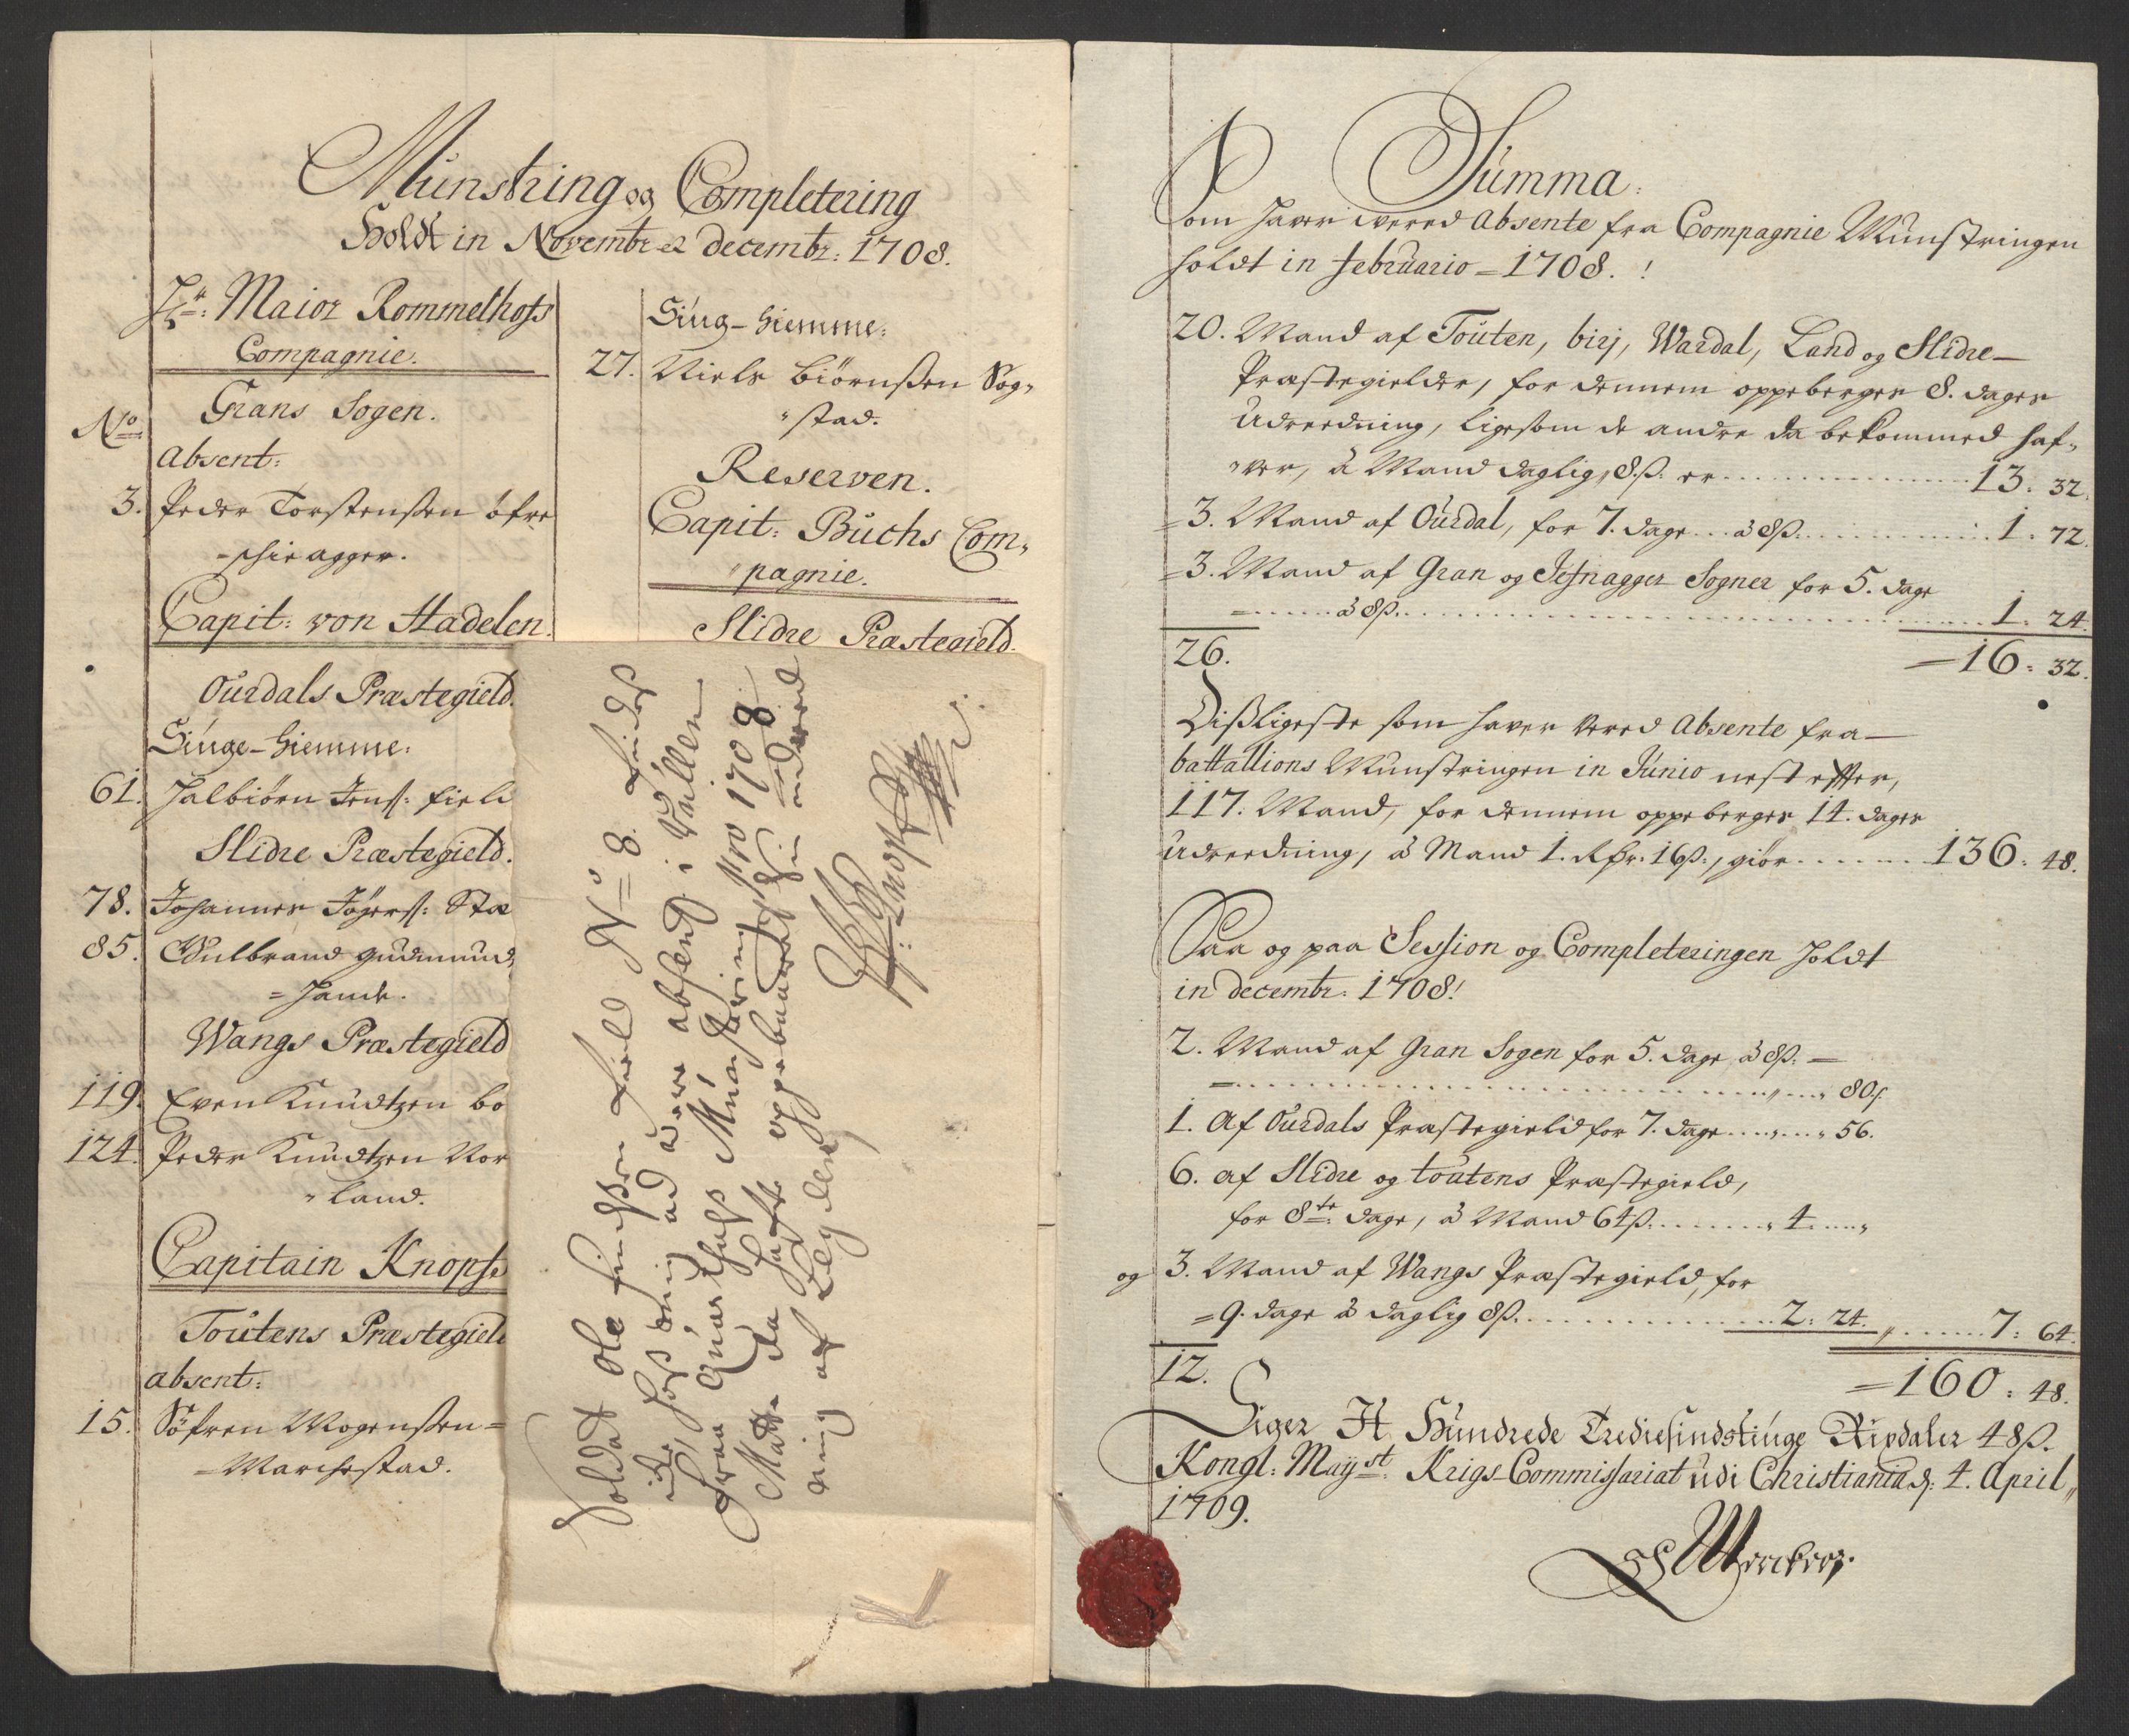 Munstring og Completering
Holdt in Novembr et decembr: 1708.
Hr: Maior Rommelhofs
Compagnie.
Grans Sogen.
No
absent:
3. Peder Torstenssen öfre
Capit: von Hadelen
Ourdals Præstegield.
Siuge-hiemme:
61. Halbiörn Jenss: field
Slidre Præstegield.
78. Johannes
85. Gulbrand Gudmund
Wangs Præstegield
119. Even Knudtzen bö
124. Peder Knudtzen Nor
"land.
Capitain Knophs
Toutens Præstegield
absent:
15. Söfren Mogenssen =
Siug-hiemme:
27. Niels Biörnssen Sog-
"stad.
Reserven.
Capit: Buchs Com-
"pagnie.
Slidre Præstegield.
Soldat Ole fin No 8.
absent i
Munstering pro 1708
Matte da oppebaaret
ning af Legden
Knoph
Summa:
Som haver vered Absente fra Compagnie Munstringen
holdt in februario - 1708. !
20. Mand af Touten, birj, Wardal, Land og Slidre-
Præstegielder, for dennem oppeberges 8. dages
Udreedning, ligesom de andre da bekommed haf-
"ver, à Mand daglig 8.ß. er ... 13: 32.
=3. Mand af Ourdal, for 7. dage ... à 8ß ... 1: 72.
=3. Mand af Gran og Jefnagger Sogner for 5. dage
à 8ß. ... 1: 24.
26. =16: 32.
Dißligeste som haver vered Absente fra-
battallions Munstringen in Junio nest efter,
117. Mand, for dennem oppeberges 14. dages
Udreedning, à Mand 1. Rdr. 16ß:, giör ... 136: 48.
Saa og paa Session og Completeringen holdt
in decembr: 1708!
2. Mand af Gran Sogen for 5. dage à 8ß: -
... 80ß
1. Af Ourdals Præstegield for 7. dage ... 56.
6. af Slidre og toutens Præstegield,
for 8te: dage, à Mand 64ß ... 4 ...
og 3. Mand af Wangs Præstegield, for
=9. dage à daglig 8ß. ... 2: 24. ... 7: 64.
12. =160: 48.
Siger Et Hundrede Trediesindstiuge Rixdaler 48ß.
Kongl: Mayst: Krigs-Commissariat udi Christiania d: 4. April
1709.